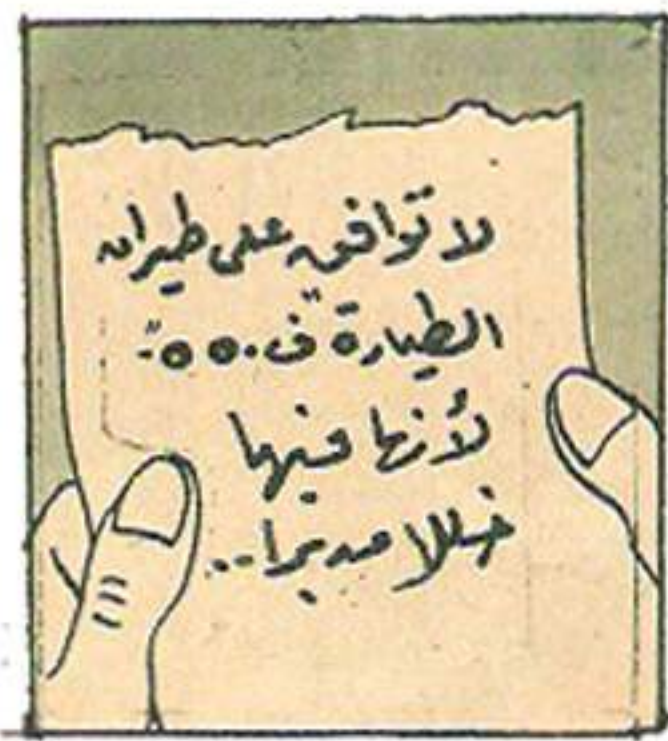 لا توافق على طيران
الطيارة "ف.٥٥."
لأنها فيها
خللا مدبرا..